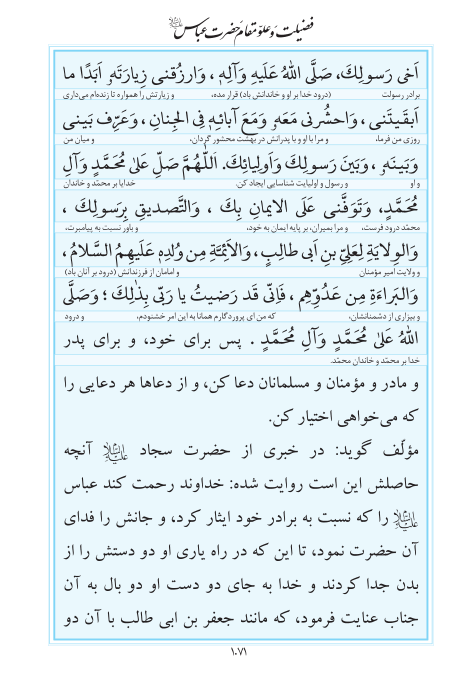 فضیلت و علوّ مقام حضرت عباس علیه‌السلام
اَخی رَسولِكَ، صَلَّی اللهُ عَلَیهِ وَآلِهِ، وَارزُقنی زِیارَتَهُ اَبَدًا ما
برادر رسولت (درود خدا بر او و خاندانش باد) قرار مده، و زیارتش را همواره تا زنده‌ام می‌داری
اَبقَیتَنی، وَاحشُرنی مَعَهُ وَمَعَ آبائِهِ فِی الجِنانِ، وَعَرِّف بَینی
روزی من فرما، و مرا با او و با پدرانش در بهشت محشور گردان، و میان من
وَبَینَهُ، وَبَینَ رَسولِكَ وَاَولِیائِكَ. اَللّٰهُمَّ صَلِّ عَلیٰ مُحَمَّدٍ وَآلِ
و او و رسول و اولیایت شناسایی ایجاد کن. خدایا بر محمّد و خاندان
مُحَمَّدٍ، وَتَوَفَّنی عَلَی الایمانِ بِكَ، وَالتَّصدیقِ بِرَسولِكَ،
محمّد درود فرست، و مرا بمیران، بر پایه ایمان به خود، و باور نسبت به پیامبرت،
وَالوِلایَةِ لِعَلِیِّ بنِ اَبی طالِبٍ، وَالاَئِمَّةِ مِن وُلدِهِ عَلَیهِمُ السَّلامُ،
و ولایت امیر مؤمنان و امامان از فرزندانش (درود بر آنان باد)
وَالبَراءَةِ مِن عَدُوِّهِم، فَاِنّی قَد رَضیتُ یا رَبّی بِذٰلِكَ؛ وَصَلَّی
و بیزاری از دشمنانشان، که من ای پروردگارم همانا به این امر خشنودم، و درود
اللهُ عَلیٰ مُحَمَّدٍ وَآلِ مُحَمَّدٍ. پس برای خود، و برای پدر
خدا بر محمّد و خاندان محمّد.
و مادر و مؤمنان و مسلمانان دعا کن، و از دعاها هر دعایی را
که می‌خواهی اختیار کن.
مؤلّف گوید: در خبری از حضرت سجاد علیه‌السلام آنچه
حاصلش این است روایت شده: خداوند رحمت کند عباس
علیه‌السلام را که نسبت به برادر خود ایثار کرد، و جانش را فدای
آن حضرت نمود، تا این که در راه یاری او دو دستش را از
بدن جدا کردند و خدا به جای دو دست او دو بال به آن
جناب عنایت فرمود، که مانند جعفر بن ابی طالب با آن دو
۱۰۷۱